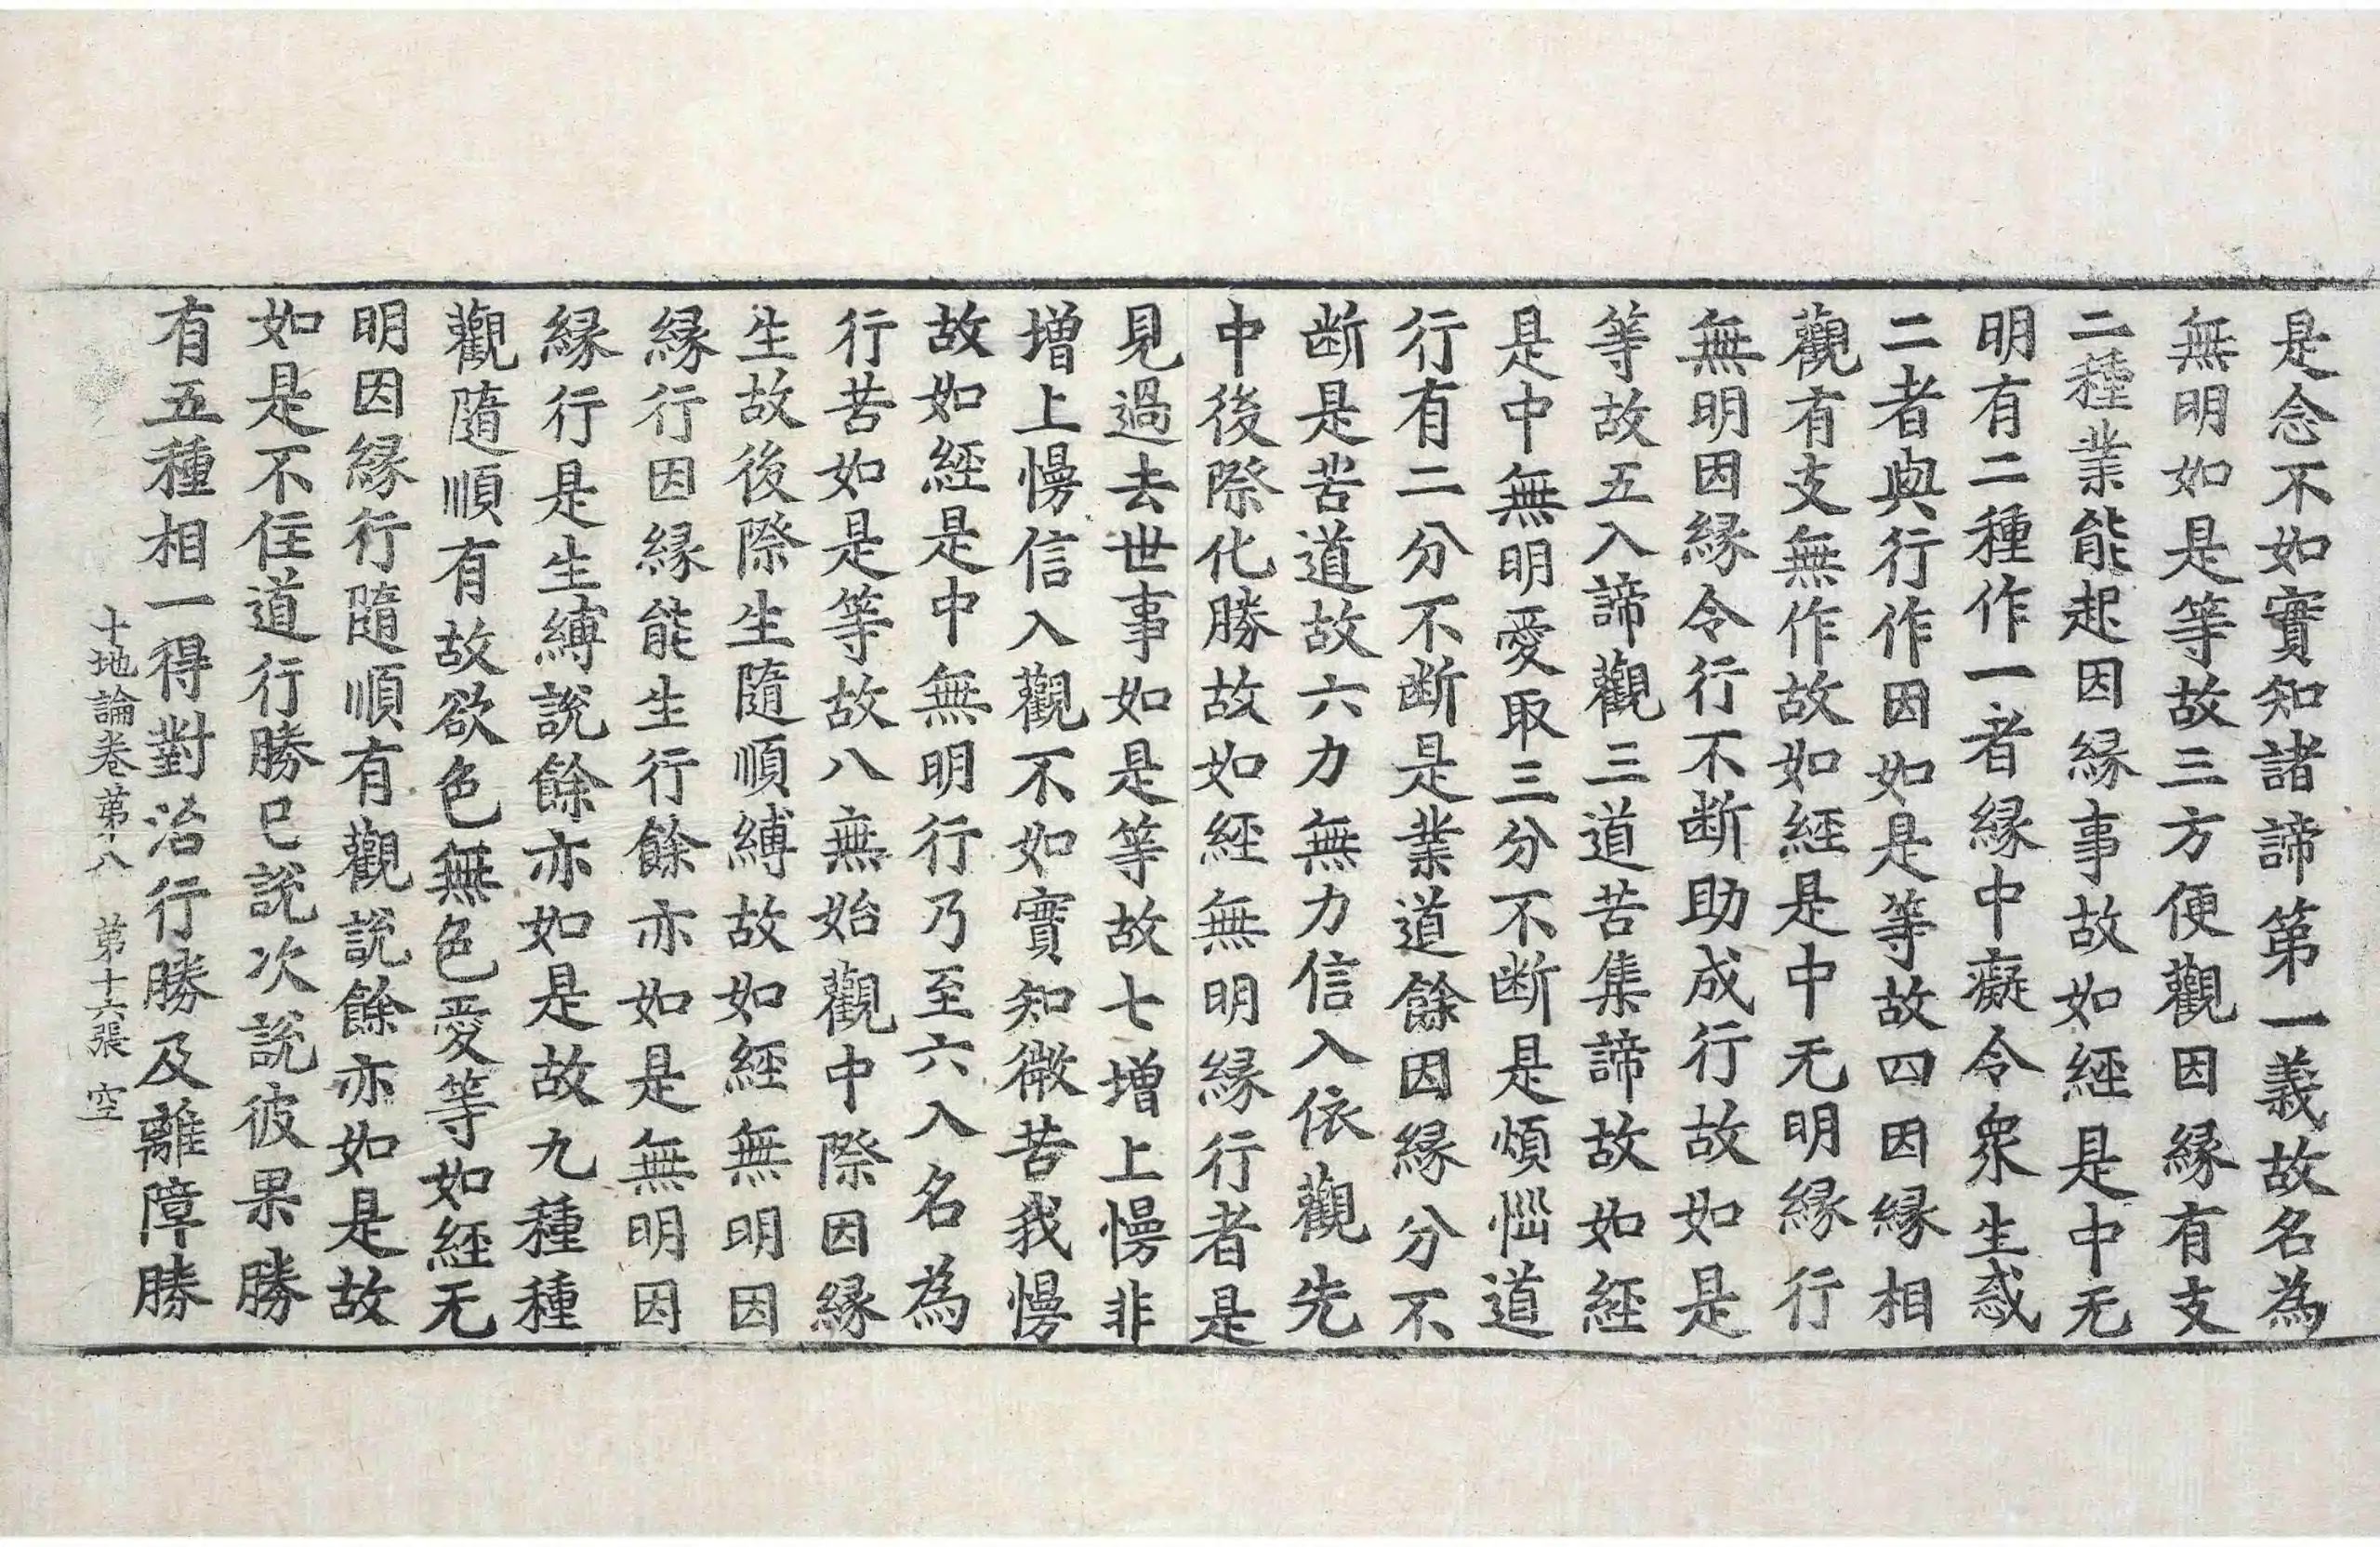 是念不如實知諸諦第一義故名為
無明如是等故三方便觀因緣有支
二種業能起因緣事故如經是中无
明有二種作一者緣中癡令衆生惑
二者與行作因如是等故四因緣相
觀有支無作故如經是中无明緣行
無明因緣令行不断助成行故如是
等故五入諦觀三道苦集諦故如經
是中無明愛取三分不断是煩惱道
行有二分不断是業道餘因緣分不
断是苦道故六力無力信入依觀先
中後際化勝故如經無明緣行者是
見過去世事如是等故七增上慢非
增上慢信入觀不如實知微苦我慢
故如經是中無明行乃至六入名為
行苦如是等故八無始觀中際因緣
生故後際生隨順縛故如經無明因
緣行因緣能生行餘亦如是無明因
緣行是生縛說餘亦如是故九種種
觀隨順有故欲色無色愛等如經无
明因緣行隨順有觀說餘亦如是故
如是不住道行勝已說次說彼果勝
有五種相一得對治行勝及離障勝
十地論卷第十八　第十六張　空